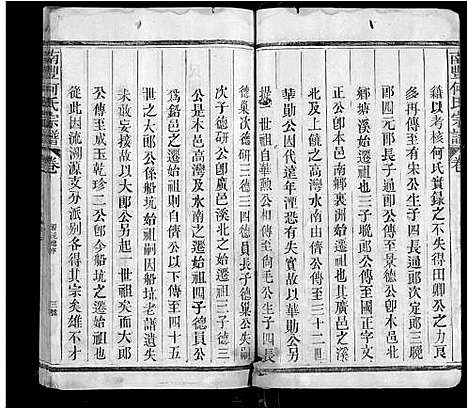 南豐何氏宗譜
卷
藉以考核何氏實錄之不失得田卿公之力
多矣傳至二十有七世宋公生子四長通郎次定郎三晚
郎四元郎長子通郎公傳至景德公卽本邑北
鄉塘溪始遷祖也三子晚郎公傳至國正文綱
正公卽本邑南鄉裏洲始遷祖也其廣邑之溪
北土陂之高灣水南由儕公以下傳至三十二世
華勛公因代遠年湮恐有失實故以華勛公
提一世祖自華勛公生子 尙毛公生子四長
德巢次德研三德三四德員長子德巢公失嗣
次子德研公創廣邑溪北之始遷祖三子德三
公是本邑高灣及水南之遷始祖四子德員公
爲鉛邑之遷始祖則自儕公以下傳至四十五
世之大郎公係船坑始祖嗣因船坑老譜遺失
未敢妄接故以大郎公另起一世祖矣而大郎
公傳至成玉乾珍二公至今船坑之裔
從此因流溯源支分派別各得其宗矣雖不才
南豐何氏宗譜
卷
三